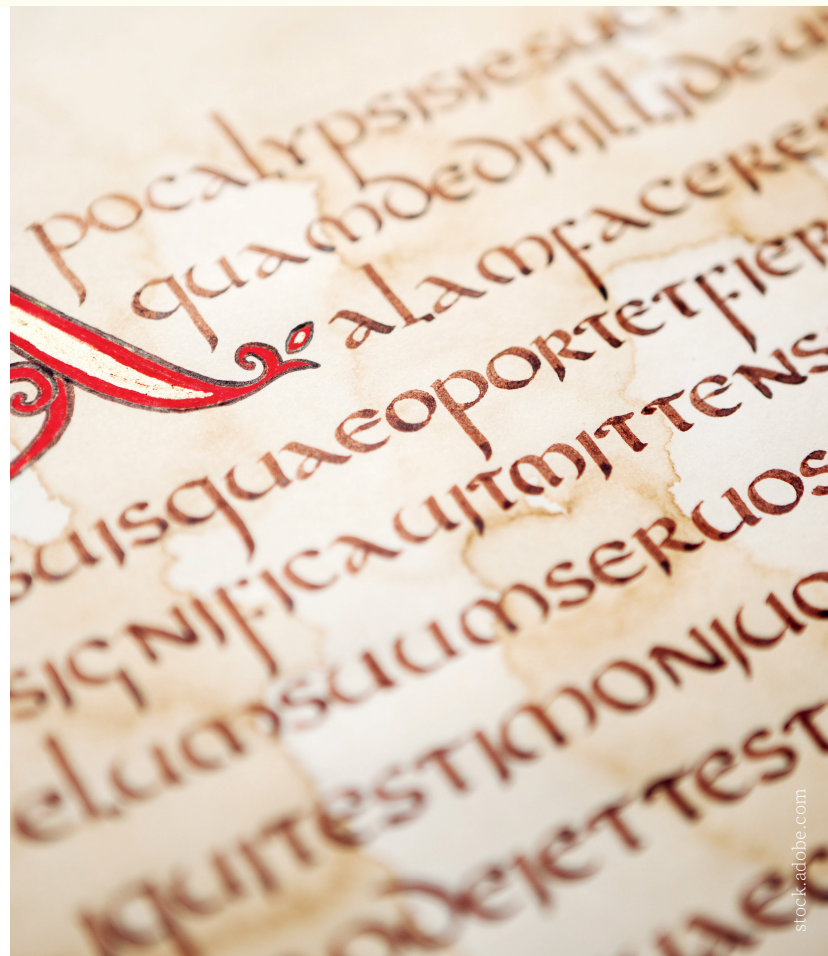 pocalypsisiesu
quamdeditillideu
alamfaceres
suisquaeoportetfier
significauitmittens
elumsuumseruos
iquitestimoniuo
odeiettest
uaec
stock.adobe.com